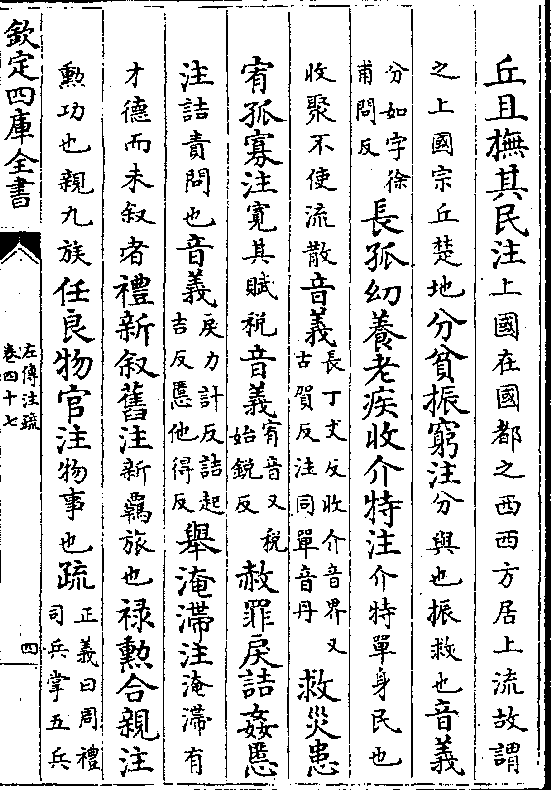 丘且撫其民注上國在國都之西西方居上流故謂
之上國宗丘楚地分貧振窮注分與也振救也音義
分如字徐
甫問反
長孤幼養老疾收介特注介特單身民也
收聚不使流散音義
長丁丈反收介音界又
古賀反注同單音丹
救災患
宥孤寡注寛其賦税音義
宥音又税
始鋭反
赦罪戾詰姦慝
注詰責問也音義
戾力計反詰起
吉反慝他得反
舉淹滯注淹滯有
才德而未叙者禮新叙舊注新羇旅也禄勲合親注
勲功也親九族任良物官注物事也疏
正義曰周禮
司兵掌五兵
欽定四庫全書
左傳注疏
卷四十七
四